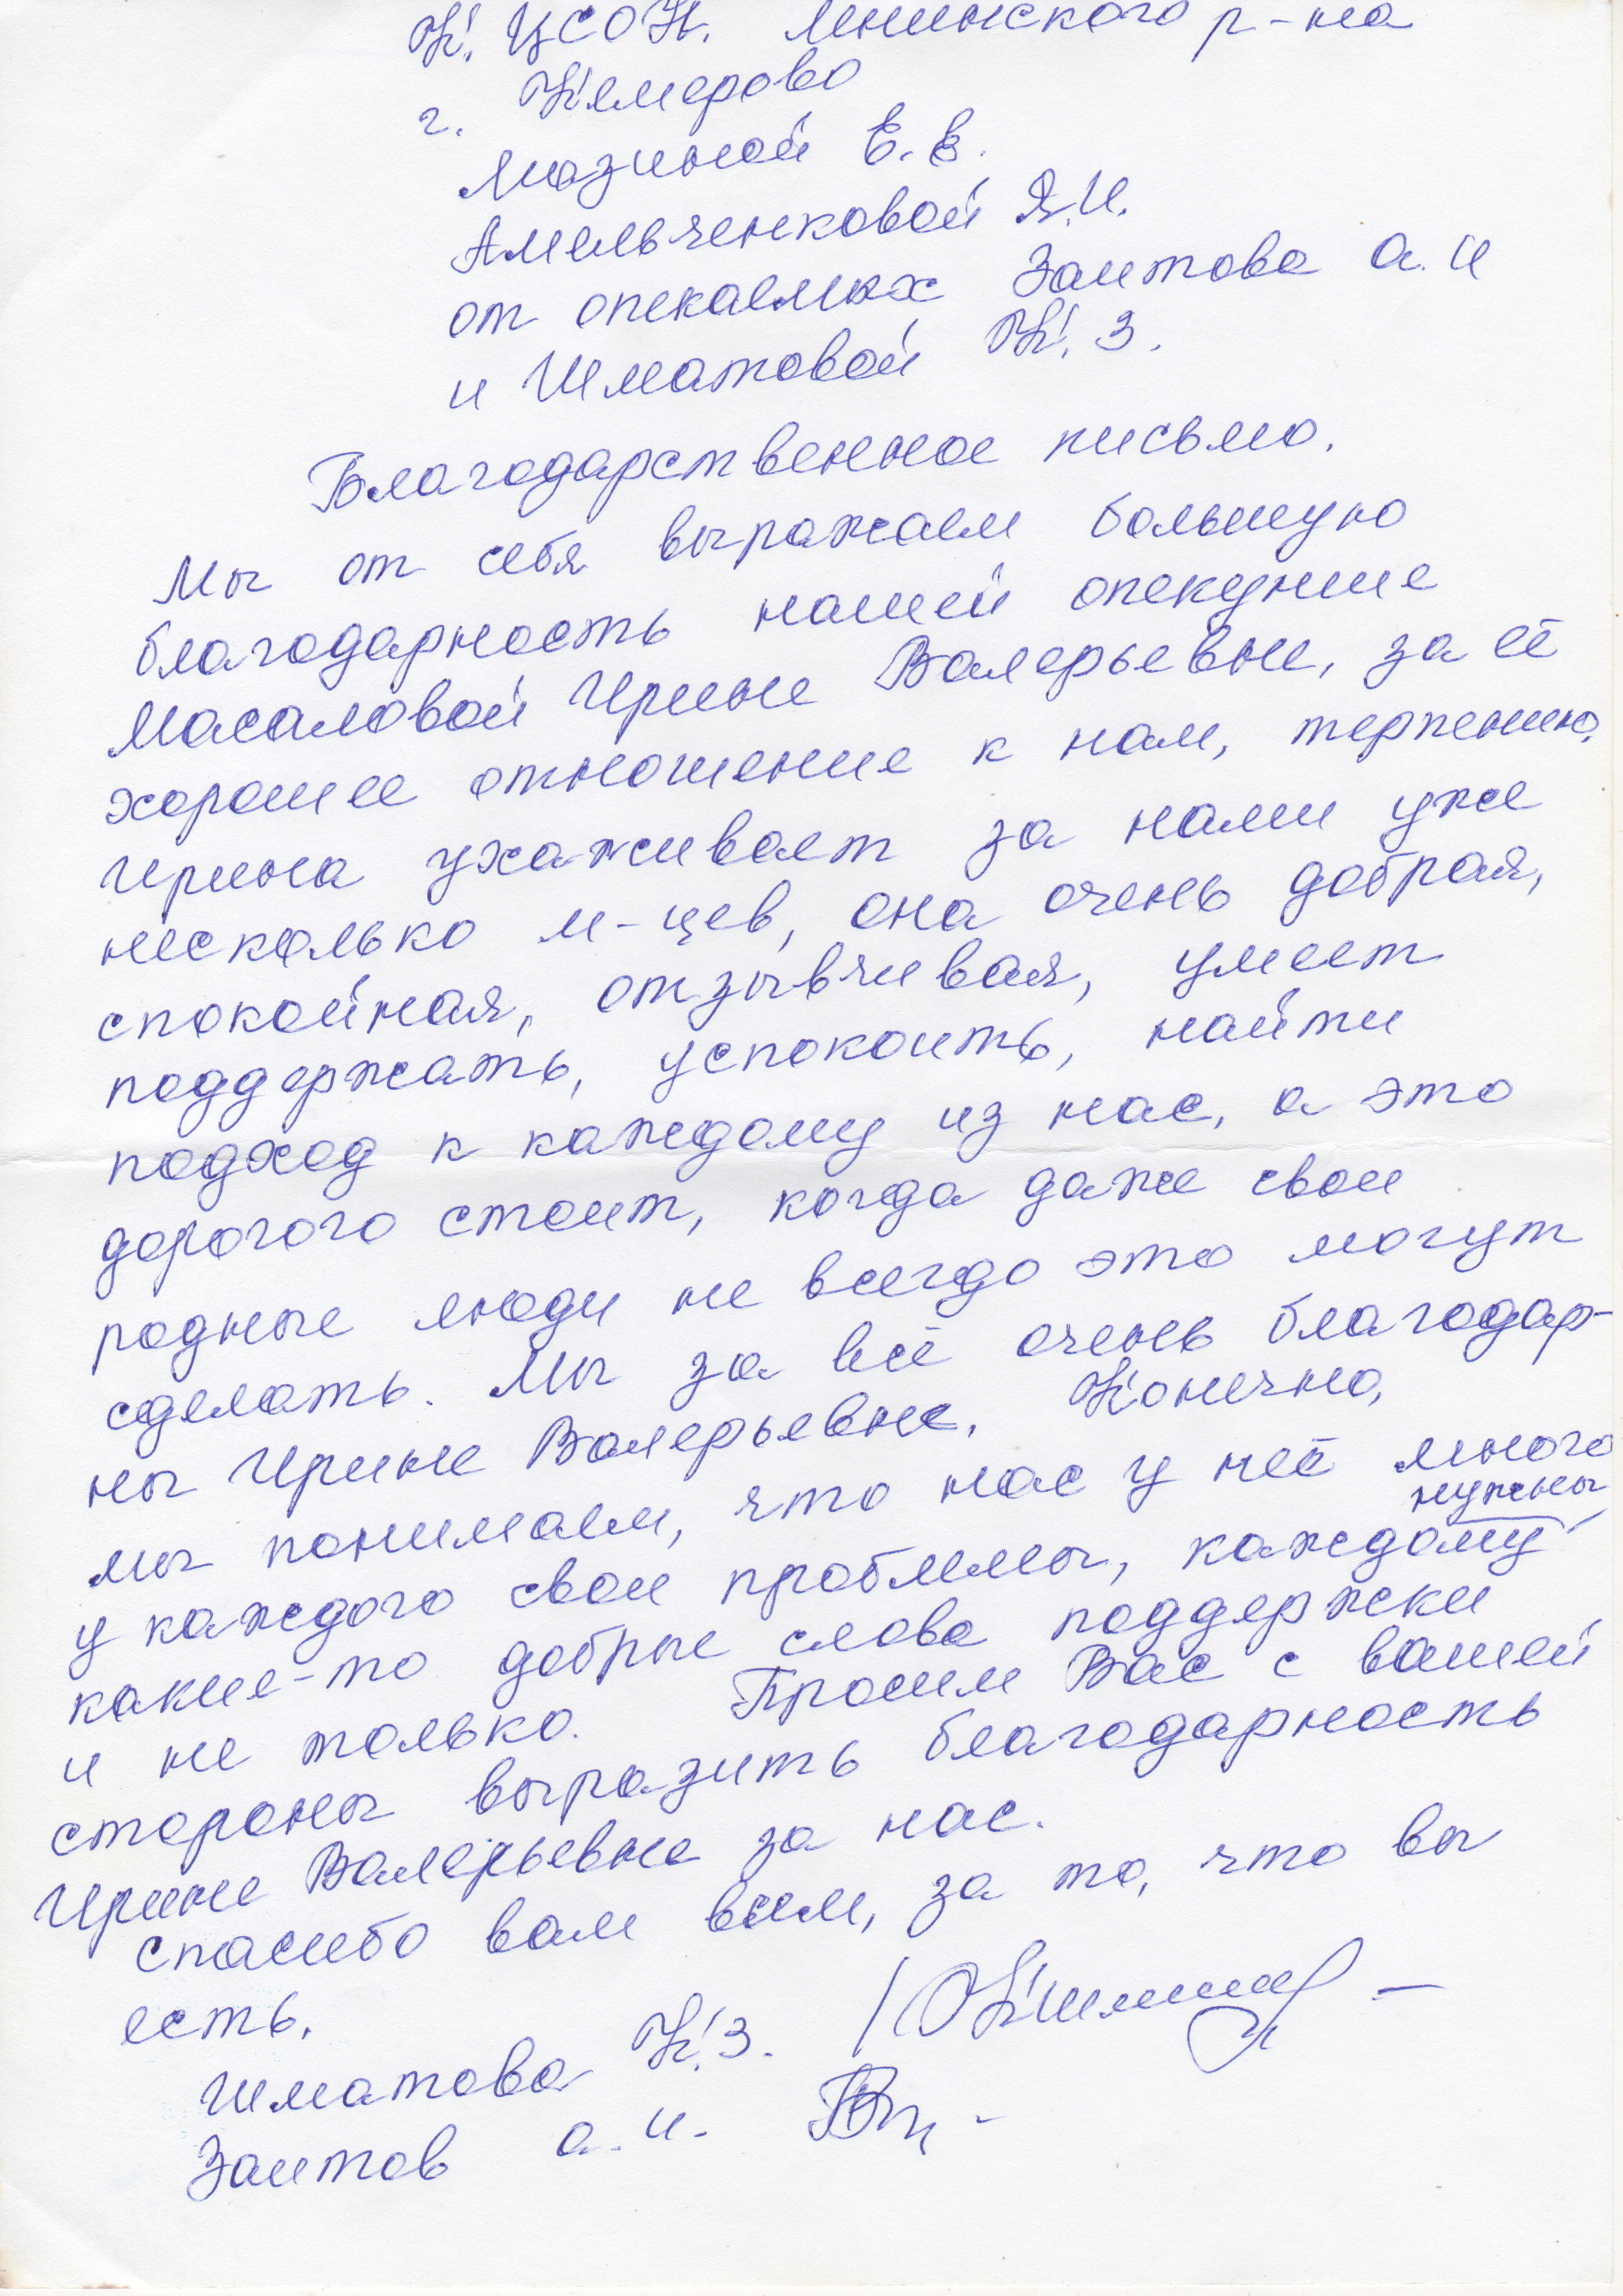 К. ЦСОН. Ленинского р-на
г. Кемерово
Мазиной Е. В.
Амельченковой Я.И.
от опекаемых Заитова А. И
и Шматовой К. З.
Благодарственное письмо.
Мы от себя выражаем большую
благодарность нашей опекунше
Масаловой Ирине Валерьевне, за её
хорошее отношение к нам, терпению,
Ирина ухаживает за нами уже
несколько м-цев, она очень добрая,
спокойная, отзывчивая, умеет
поддержать, успокоить, найти
подход к каждому из нас, а это
дорогого стоит, когда даже свои
родные люди не всегда это могут
сделать. Мы за всё очень благодар-
ны Ирине Валерьевне. Конечно,
мы понимаем, что нас у неё много
нужны
у каждого свои проблемы, каждому
какие-то добрые слова поддержки
и не только. Просим Вас с вашей
стороны выразить благодарность
Ирине Валерьевне за нас.
Спасибо вам всем, за то, что вы
есть.
Шматова К.З.
Заитов А. И.